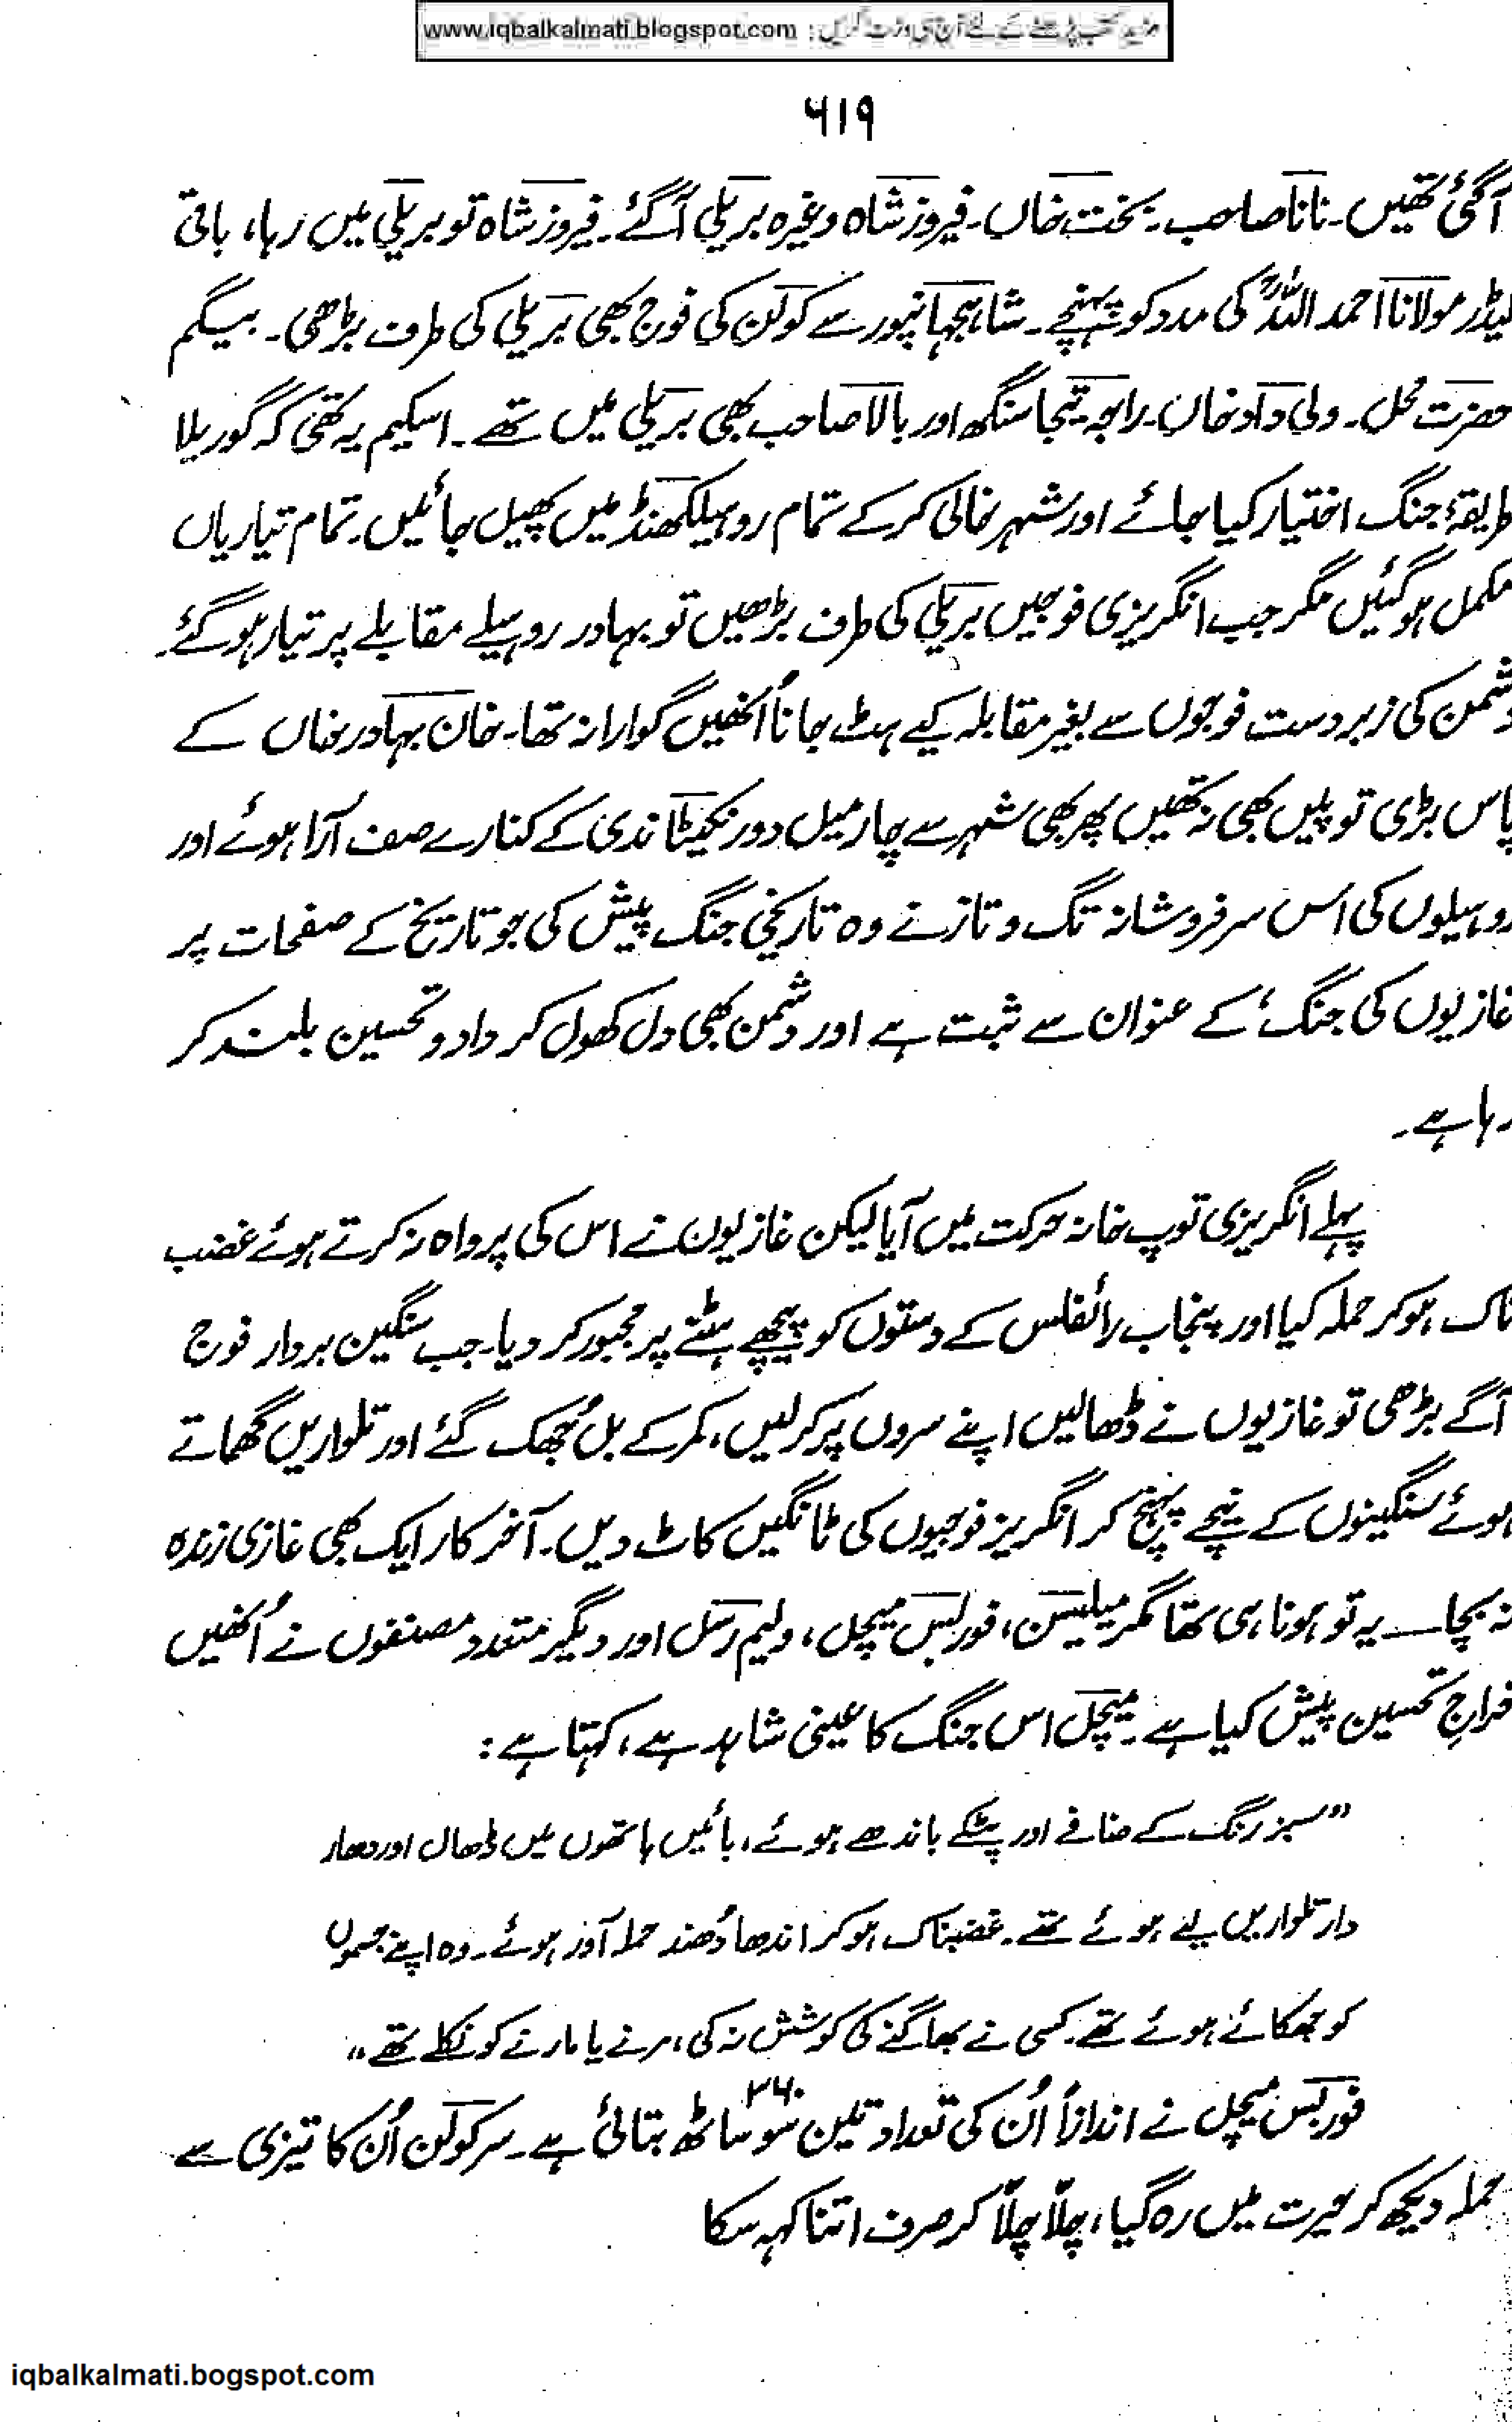 مزید کتب پڑھنے کے لئے آج ہی وزٹ کریں : www.iqbalkalmati.blogspot.com
۶۱۹
آگئی تھیں۔ نانا صاحب۔ بخت خاں۔ فیروز شاہ وغیرہ بریلی آ گئے۔ فیروز شاہ تو بریلی میں رہا، باقی
لیڈر مولانا احمد اللہؒ کی مدد کو پہنچے۔ شاہجہانپور سے کولن کی فوج بھی بریلی کی طرف بڑھی۔ بیگم
حضرت محل۔ ولی داد خاں۔ راجہ تیجا سنگھ اور بالا صاحب بھی بریلی میں تھے۔ اسکیم یہ تھی کہ گوریلا
طریقۂ جنگ اختیار کیا جائے اور شہر خالی کر کے تمام روہیلکھنڈ میں پھیل جائیں۔ تمام تیاریاں
مکمل ہو گئیں مگر جب انگریزی فوجیں بریلی کی طرف بڑھیں تو بہادر روہیلے مقابلے پر تیار ہو گئے۔
دشمن کی زبردست فوجوں سے بغیر مقابلہ کیے ہٹ جانا اُنھیں گوارا نہ تھا۔ خان بہادر خاں کے
پاس بڑی توپیں بھی نہ تھیں پھر بھی شہر سے چار میل دور نکیٹا ندی کے کنارے صف آرا ہوئے اور
روہیلوں کی اس سرفروشانہ تگ و تاز نے وہ تاریخی جنگ پیش کی جو تاریخ کے صفحات پر
غازیوں کی جنگ' کے عنوان سے ثبت ہے اور دشمن بھی دل کھول کر داد و تحسین بلند کر
رہا ہے۔
پہلے انگریزی توپ خانہ حرکت میں آیا لیکن غازیوں نے اس کی پرواہ نہ کرتے ہوئے غضب
ناک ہو کر حملہ کیا اور پنجاب رائفلس کے دستوں کو پیچھے ہٹنے پر مجبور کر دیا۔ جب سنگین بردار فوج
آگے بڑھی تو غازیوں نے ڈھالیں اپنے سروں پر کر لیں، کمر کے بل جُھک گئے اور تلواریں گھماتے
ہوئے سنگینوں کے نیچے پہنچ کر انگریز فوجیوں کی ٹانگیں کاٹ دیں۔ آخر کار ایک بھی غازی زندہ
نہ بچا ـــ یہ تو ہونا ہی تھا مگر میلیسن، فوربس میچل، ولیم رسل اور دیگر متعدد مصنفوں نے اُنھیں
خراجِ تحسین پیش کیا ہے۔ میچل اس جنگ کا عینی شاہد ہے، کہتا ہے :
"سبز رنگ کے صافے اور پٹکے باندھے ہوئے، بائیں ہاتھوں میں ڈھال اور دھار
دار تلواریں لیے ہوئے تھے۔ غضبناک ہو کر اندھا دُھند حملہ آور ہوئے۔ وہ اپنے جسموں
کو جھکائے ہوئے تھے۔ کسی نے بھاگنے کی کوشش نہ کی، مرنے یا مارنے کو نکلے تھے"
فوربس میچل نے اندازاً اُن کی تعداد تین سو ساٹھ ۳۶۰ بتائی ہے۔ سر کولن اُن کا تیزی سے
حملہ دیکھ کر حیرت میں رہ گیا، چلّا چلّا کر صرف اتنا کہہ سکا
iqbalkalmati.bogspot.com